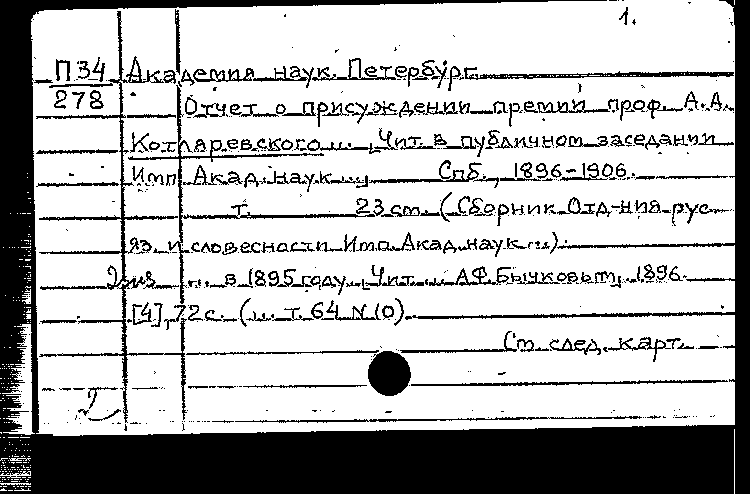 1.
П34 Академия наук. Петербург.
278 Отчет о присуждении премий проф. А.А.
Котляревского ..., Чит. в публичном заседании
Имп. Акад. наук ..., Спб., 1896-1906.
т. 23 см. (Сборник Отд-ния рус.
яз. и словесности Имп. Акад. наук ...).
2экз ... в 1895 году, Чит. ... А.Ф. Бычковым, 1896.
[4], 72 с. (... т. 64 N 10).
См. след. карт.
2